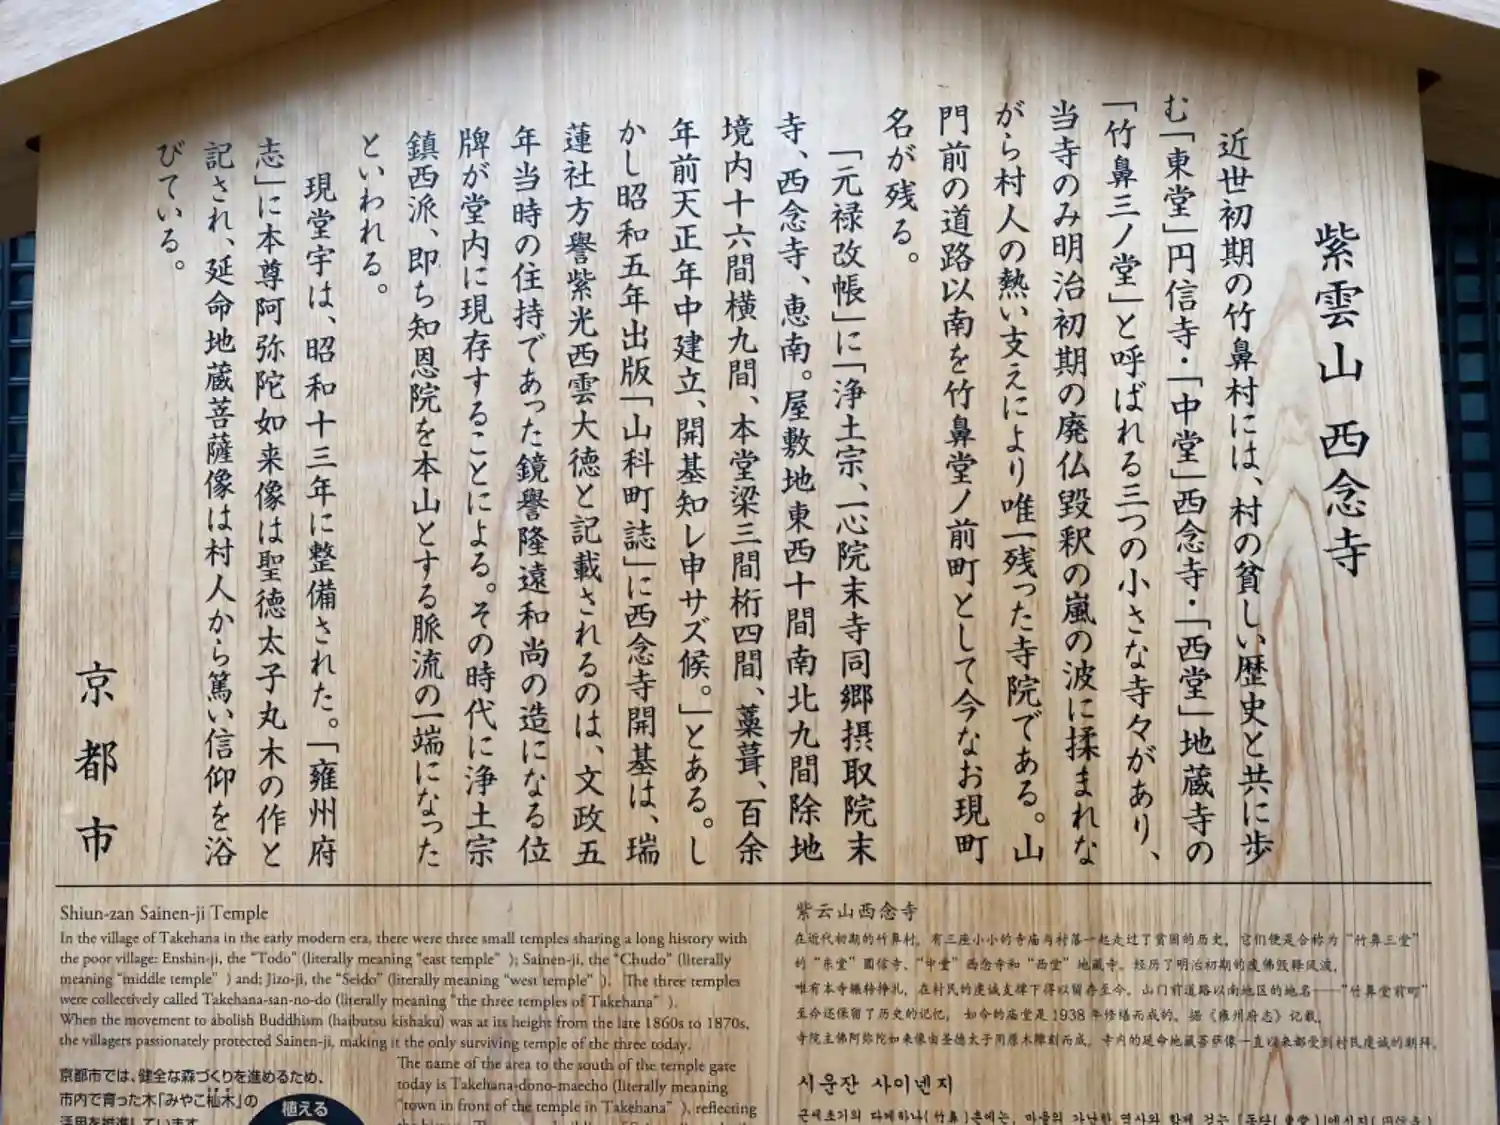 紫雲山 西念寺
近世初期の竹鼻村には、村の貧しい歴史と共に歩
む「東堂」円信寺・「中堂」西念寺・「西堂」地蔵寺の
「竹鼻三ノ堂」と呼ばれる三つの小さな寺々があり、
当寺のみ明治初期の廃仏毀釈の嵐の波に揉まれな
がら村人の熱い支えにより唯一残った寺院である。山
門前の道路以南を竹鼻堂ノ前町として今なお現町
名が残る。
「元禄改帳」に「浄土宗、一心院末寺同郷摂取院末
寺、西念寺、恵南。屋敷地東西十間南北九間除地
境内十六間横九間、本堂梁三間桁四間、藁葺、百余
年前天正年中建立、開基知レ申サズ候。」とある。し
かし昭和五年出版「山科町誌」に西念寺開基は、瑞
蓮社方譽紫光西雲大徳と記載されるのは、文政五
年当時の住持であった鏡譽隆遠和尚の造になる位
牌が堂内に現存することによる。その時代に浄土宗
鎮西派、即ち知恩院を本山とする脈流の一端になった
といわれる。
現堂宇は、昭和十三年に整備された。「雍州府
志」に本尊阿弥陀如来像は聖徳太子丸木の作と
記され、延命地蔵菩薩像は村人から篤い信仰を浴
びている。
京都市
Shiun-zan Sainen-ji Temple
In the village of Takehana in the early modern era, there were three small temples sharing a long history with
the poor village: Enshin-ji, the "Todo" (literally meaning "east temple" ); Sainen-ji, the "Chudo" (literally
meaning "middle temple" ) and; Jizo-ji, the "Seido" (literally meaning "west temple" ). The three temples
were collectively called Takehana-san-no-do (literally meaning "the three temples of Takehana" ).
When the movement to abolish Buddhism (haibutsu kishaku) was at its height from the late 1860s to 1870s,
the villagers passionately protected Sainen-ji, making it the only surviving temple of the three today.
The name of the area to the south of the temple gate
today is Takehana-dono-maecho (literally meaning
"town in front of the temple in Takehana" ), reflecting
京都市では、健全な森づくりを進めるため、
市内で育った木「みやこ杣木」の
活用を推進しています。
植える
紫云山西念寺
在近代初期的竹鼻村，有三座小小的寺庙与村落一起走过了贫困的历史，它们便是合称为"竹鼻三堂"
的"东堂"圆信寺、"中堂"西念寺和"西堂"地藏寺。经历了明治初期的废佛毁释风波，
唯有本寺辗转挣扎，在村民的虔诚支撑下得以留存至今。山门前道路以南地区的地名——"竹鼻堂前町"
至今还保留了历史的记忆，如今的庙堂是1938年修缮而成的。据《雍州府志》记载，
寺院主佛阿弥陀如来像由圣德太子用原木雕刻而成。寺内的延命地藏菩萨像一直以来都受到村民虔诚的朝拜。
시운잔 사이넨지
근세초기의 다케하나(竹鼻)촌에는, 마을의 가난한 역사와 함께 걷는